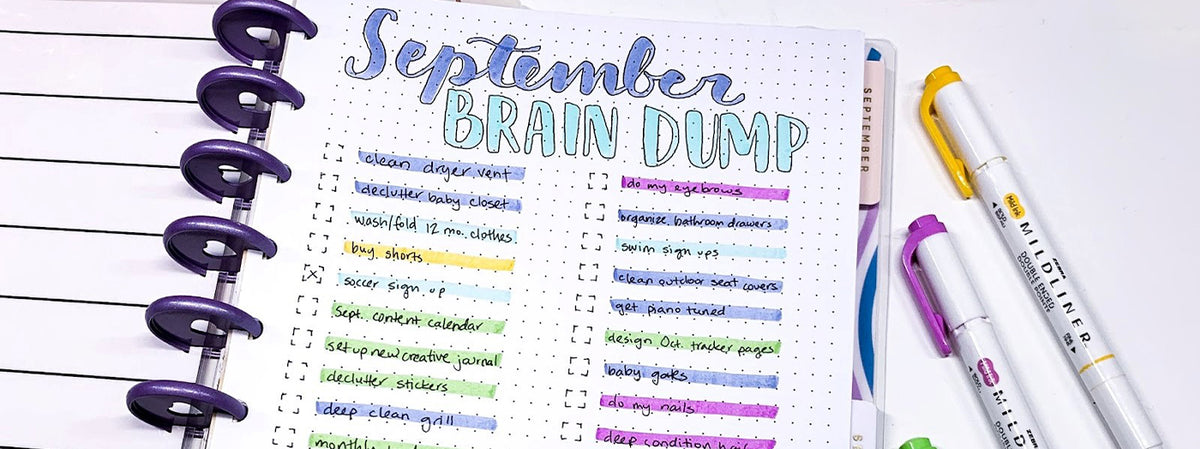 September
BRAIN DUMP
clean dryer vent
declutter baby closet
wash/fold 12 mo. clothes
buy shorts
soccer sign up
Sept. content calendar
set up new creative journal
declutter stickers
deep clean grill
do my eyebrows
organize bathroom drawers
swim sign ups
clean outdoor seat covers
get piano tuned
design Oct. tracker pages
baby gates
do my nails
deep condition
SEPTEMBER
ZEBRA
MILDLINER
DOUBLE ENDED
ZEBRA
MILD